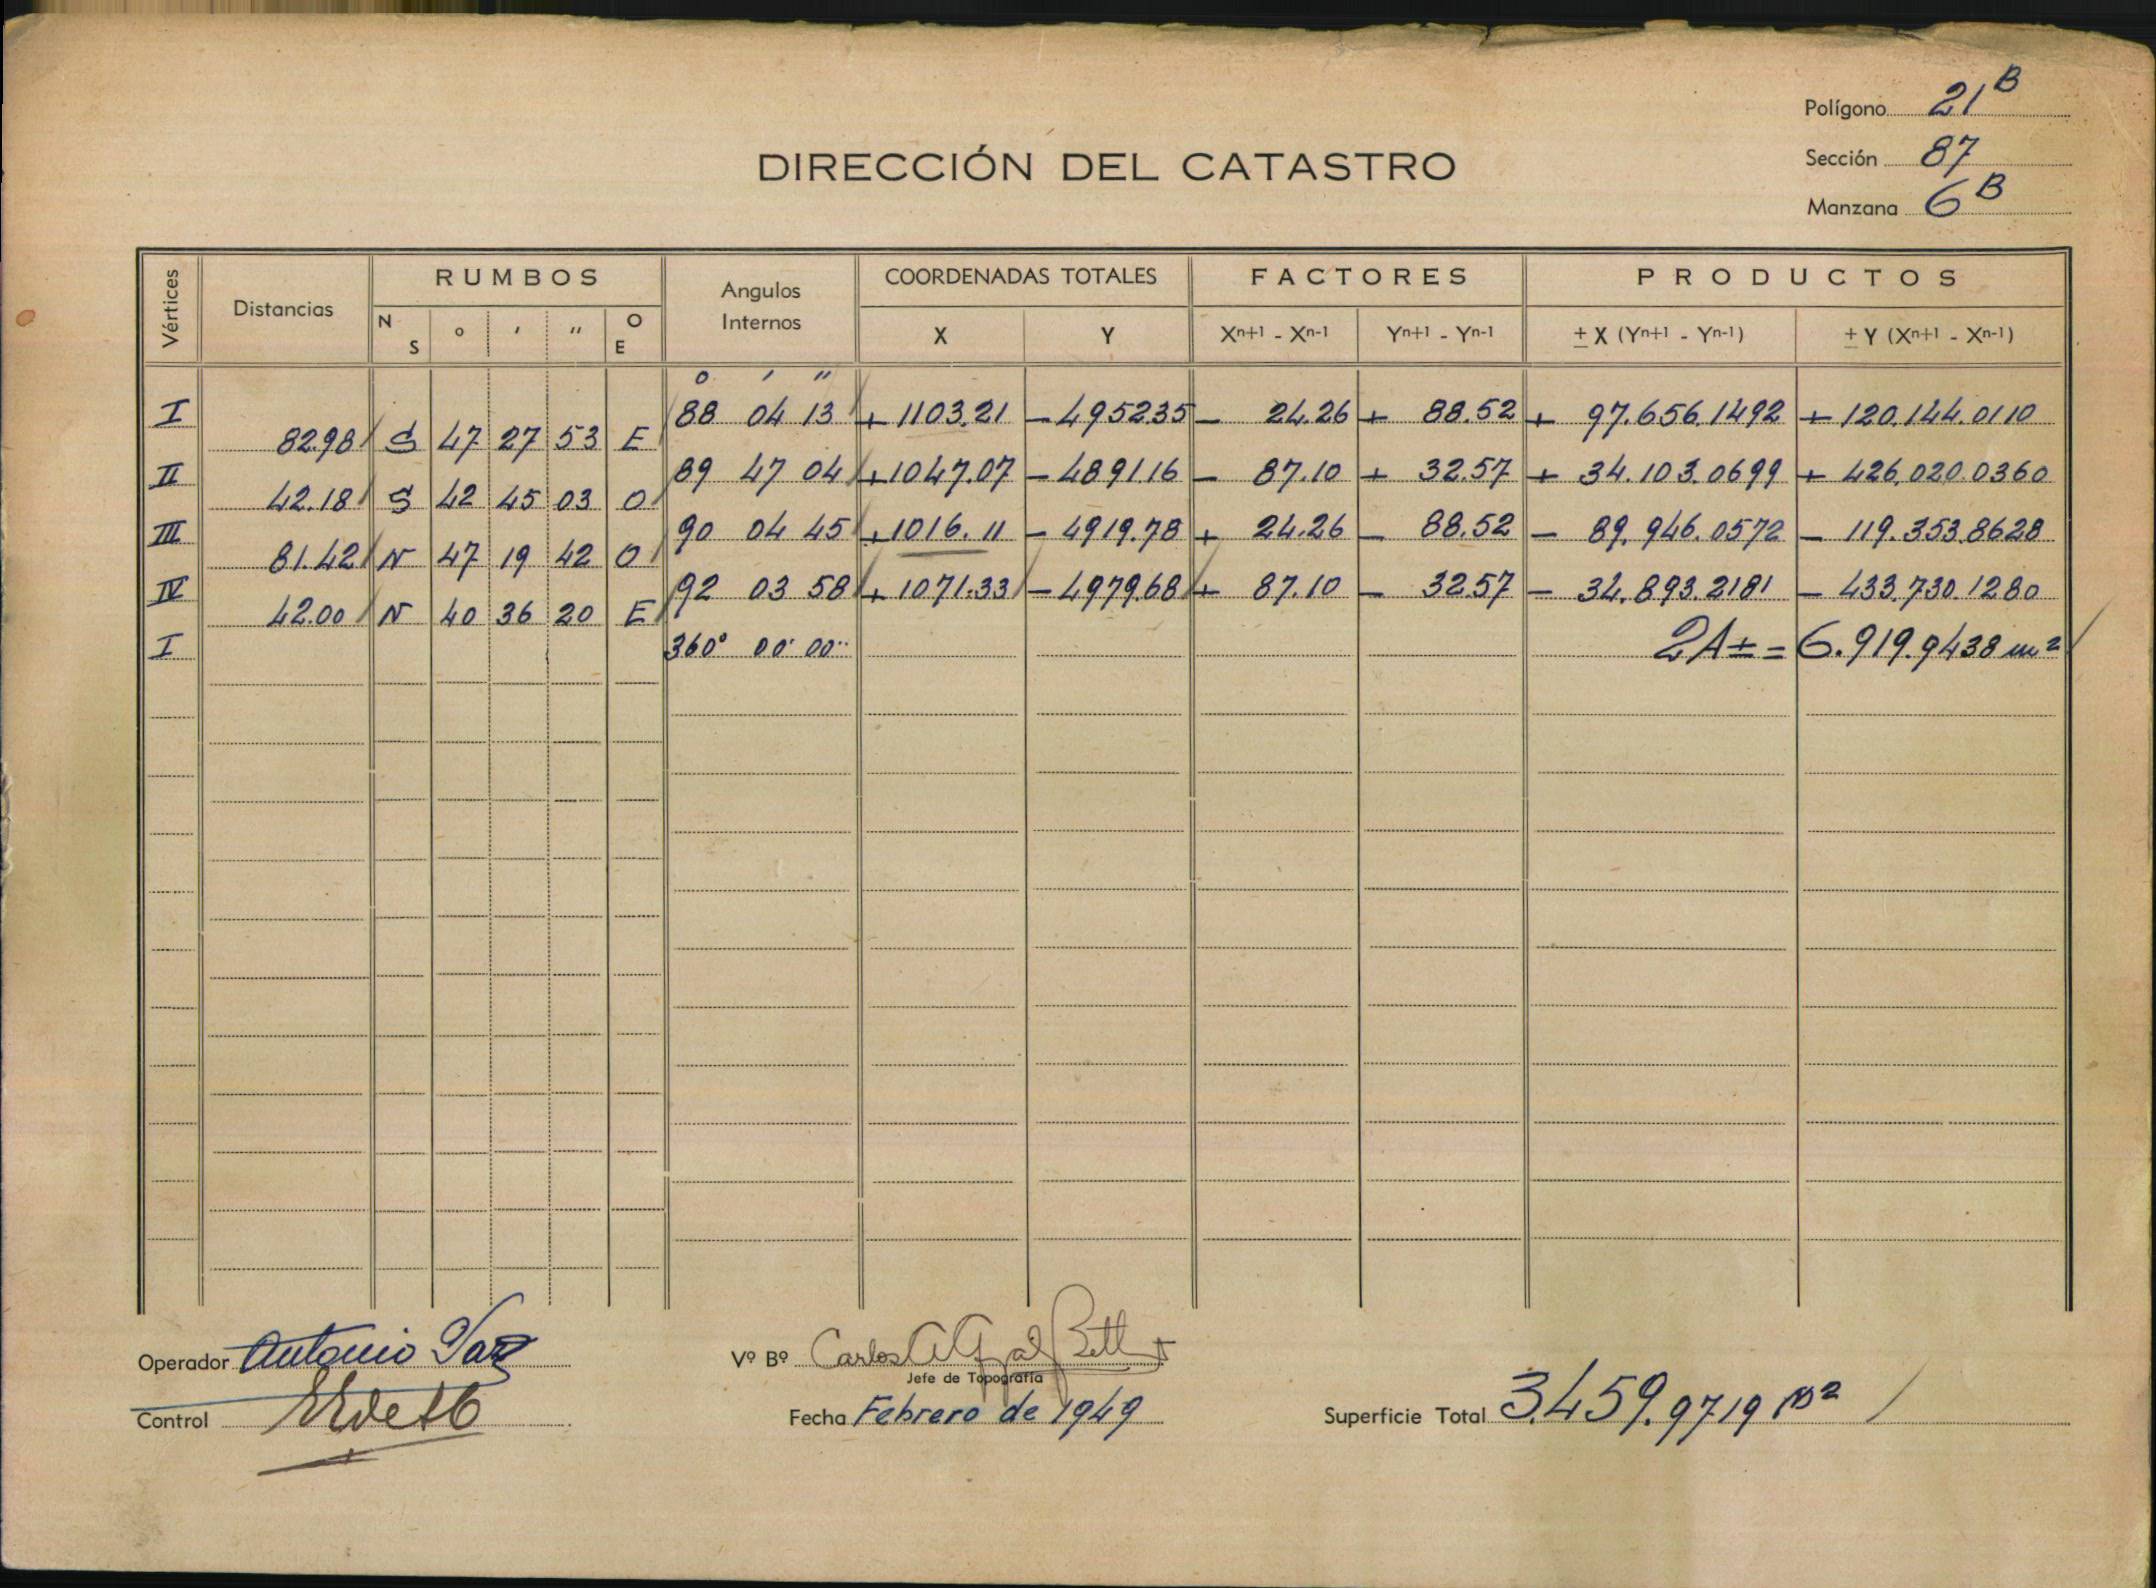 Polígono 21 B
DIRECCIÓN DEL CATASTRO
Sección 87
Manzana 6 B
Vértices Distancias RUMBOS Angulos Internos COORDENADAS TOTALES FACTORES PRODUCTOS
N S o ' " O E X Y Xn+1 - Xn-1 Yn+1 - Yn-1 ± X (Yn+1 - Yn-1) ± Y (Xn+1 - Xn-1)
o ' "
I 88 04 13 + 1103.21 - 4952.35 - 24.26 + 88.52 + 97.656.1492 + 120.144.0110
82.98 S 47 27 53 E
II 89 47 04 + 1047.07 - 4891.16 - 87.10 + 32.57 + 34.103.0699 + 426.020.0360
42.18 S 42 45 03 O
III 90 04 45 + 1016.11 - 4919.78 + 24.26 - 88.52 - 89.946.0572 - 119.353.8628
81.42 N 47 19 42 O
IV 92 03 58 + 1071.33 - 4979.68 + 87.10 - 32.57 - 34.893.2181 - 433.730.1280
42.00 N 40 36 20 E
I 360° 00' 00'' 2A ± = 6.919.9438 m2
Operador Antonio
Vº Bº Carlos A
Jefe de Topografía
Control
Fecha Febrero de 1949
Superficie Total 3.459.9719 m2